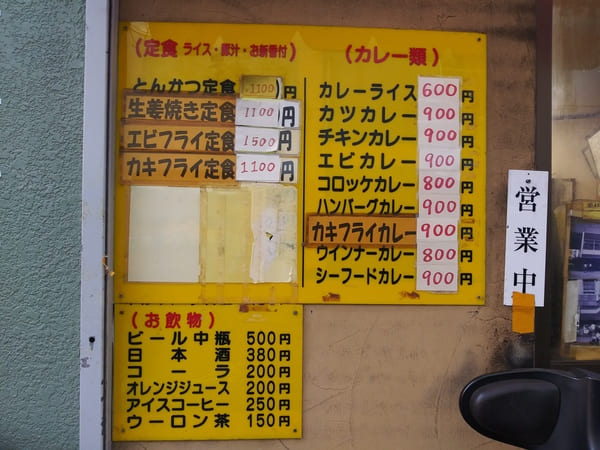 (定食 ライス・豚汁・お新香付)
とんかつ定食 1100円
生姜焼き定食 1100円
エビフライ定食 1500円
カキフライ定食 1100円
(カレー類)
カレーライス 600円
カツカレー 900円
チキンカレー 900円
エビカレー 900円
コロッケカレー 800円
ハンバーグカレー 900円
カキフライカレー 900円
ウインナーカレー 800円
シーフードカレー 900円
(お飲物)
ビール中瓶 500円
日本酒 380円
コーラ 200円
オレンジジュース 200円
アイスコーヒー 250円
ウーロン茶 150円
営業中